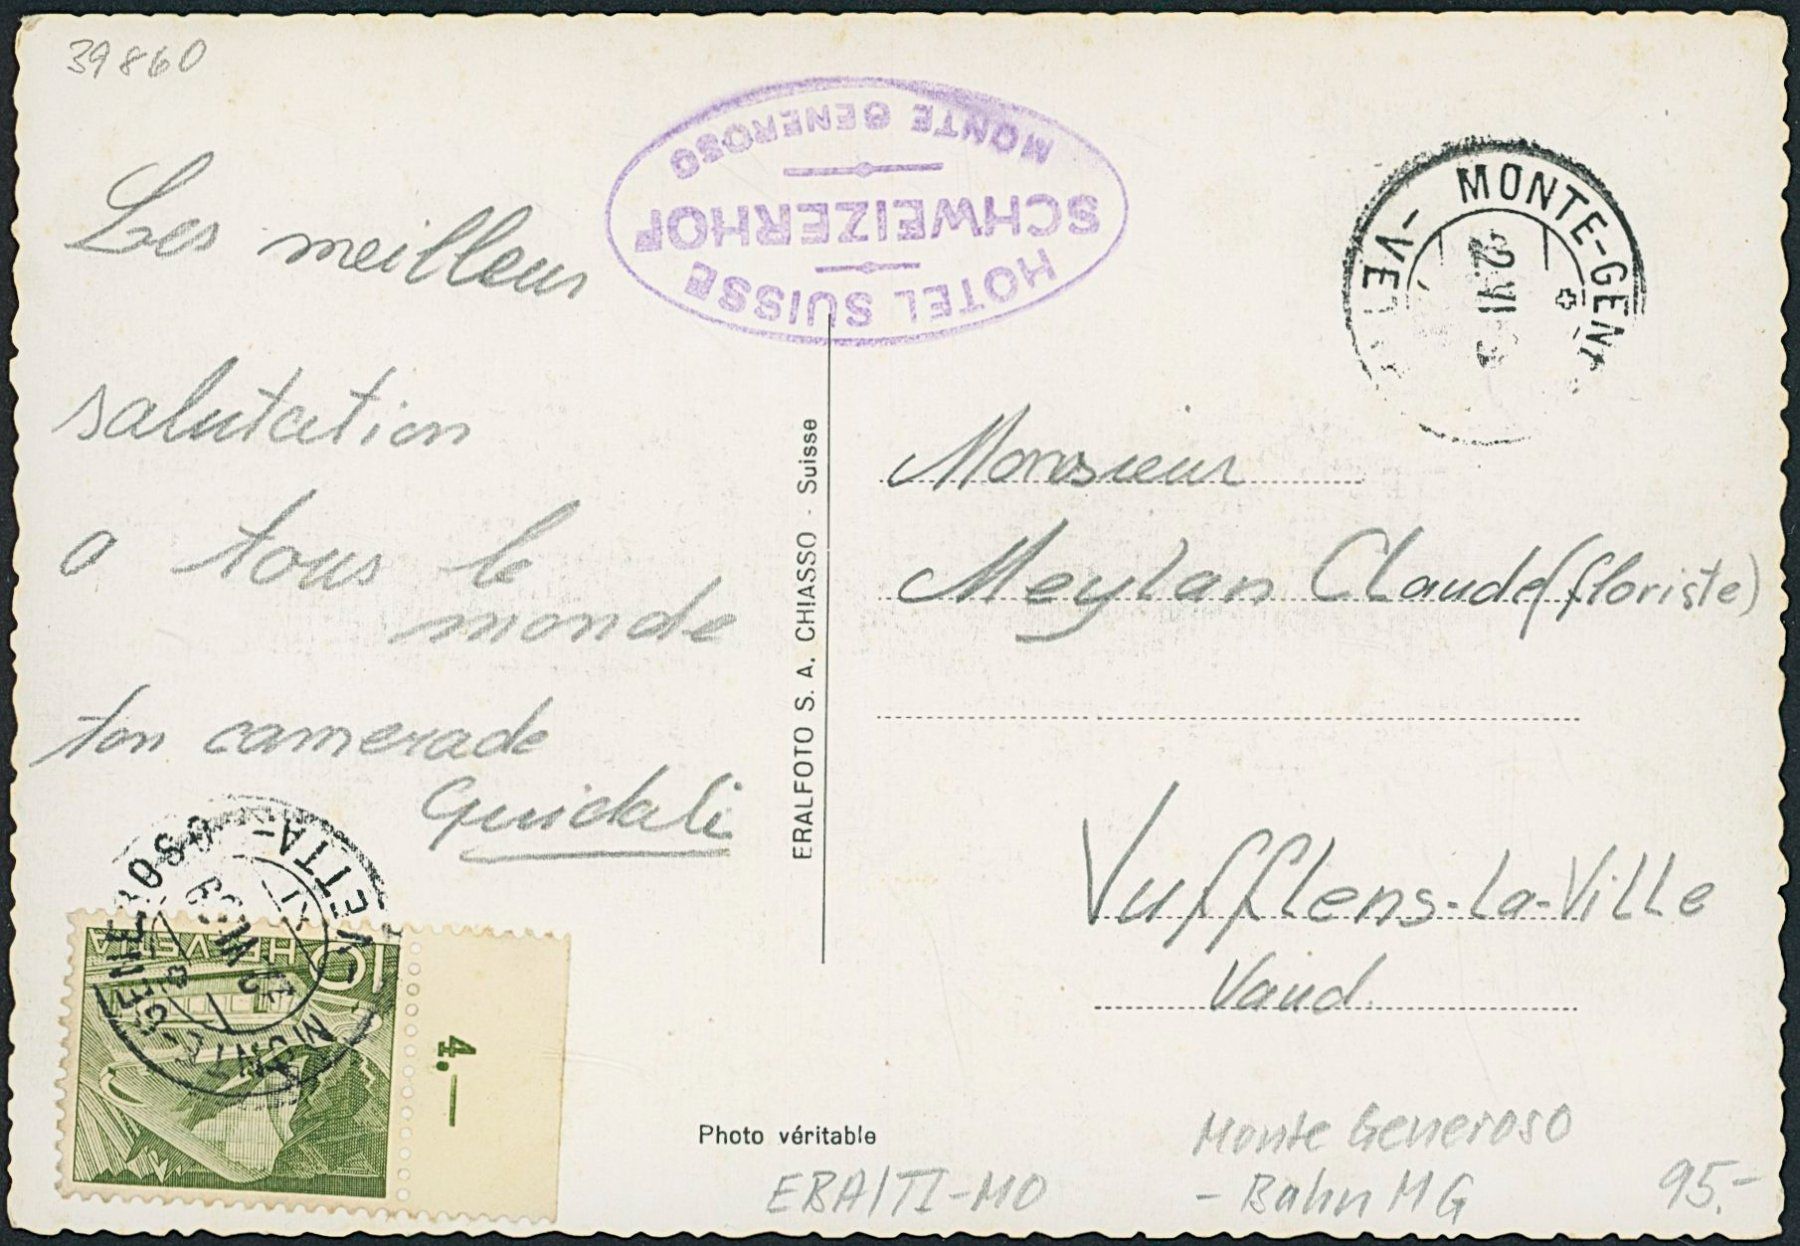 39860
HOTEL SUISSE
SCHWEIZERHOF
MONTE GENEROSO
MONTE-GENE
-VETTA
2.VI
Les meilleur
salutation
a tous le
monde
ton camerade
Guidali
ERALFOTO S. A. CHIASSO - Suisse
Monsieur
Meylan Claude (floriste)
Vufflens-La-Ville
Vaud.
MONTE-GENEROSO
VETTA-
HELVETIA
10
4.—
Photo véritable
EBA/TI-MO
Monte Generoso
- Bahn MG
95.-